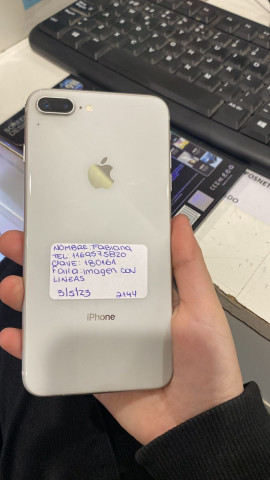 NOMBRE: Fabiana
TEL 1169575820
CLAVE: 180161
Falla: imagen con
LINEAS
3/5/23 2144
iPhone